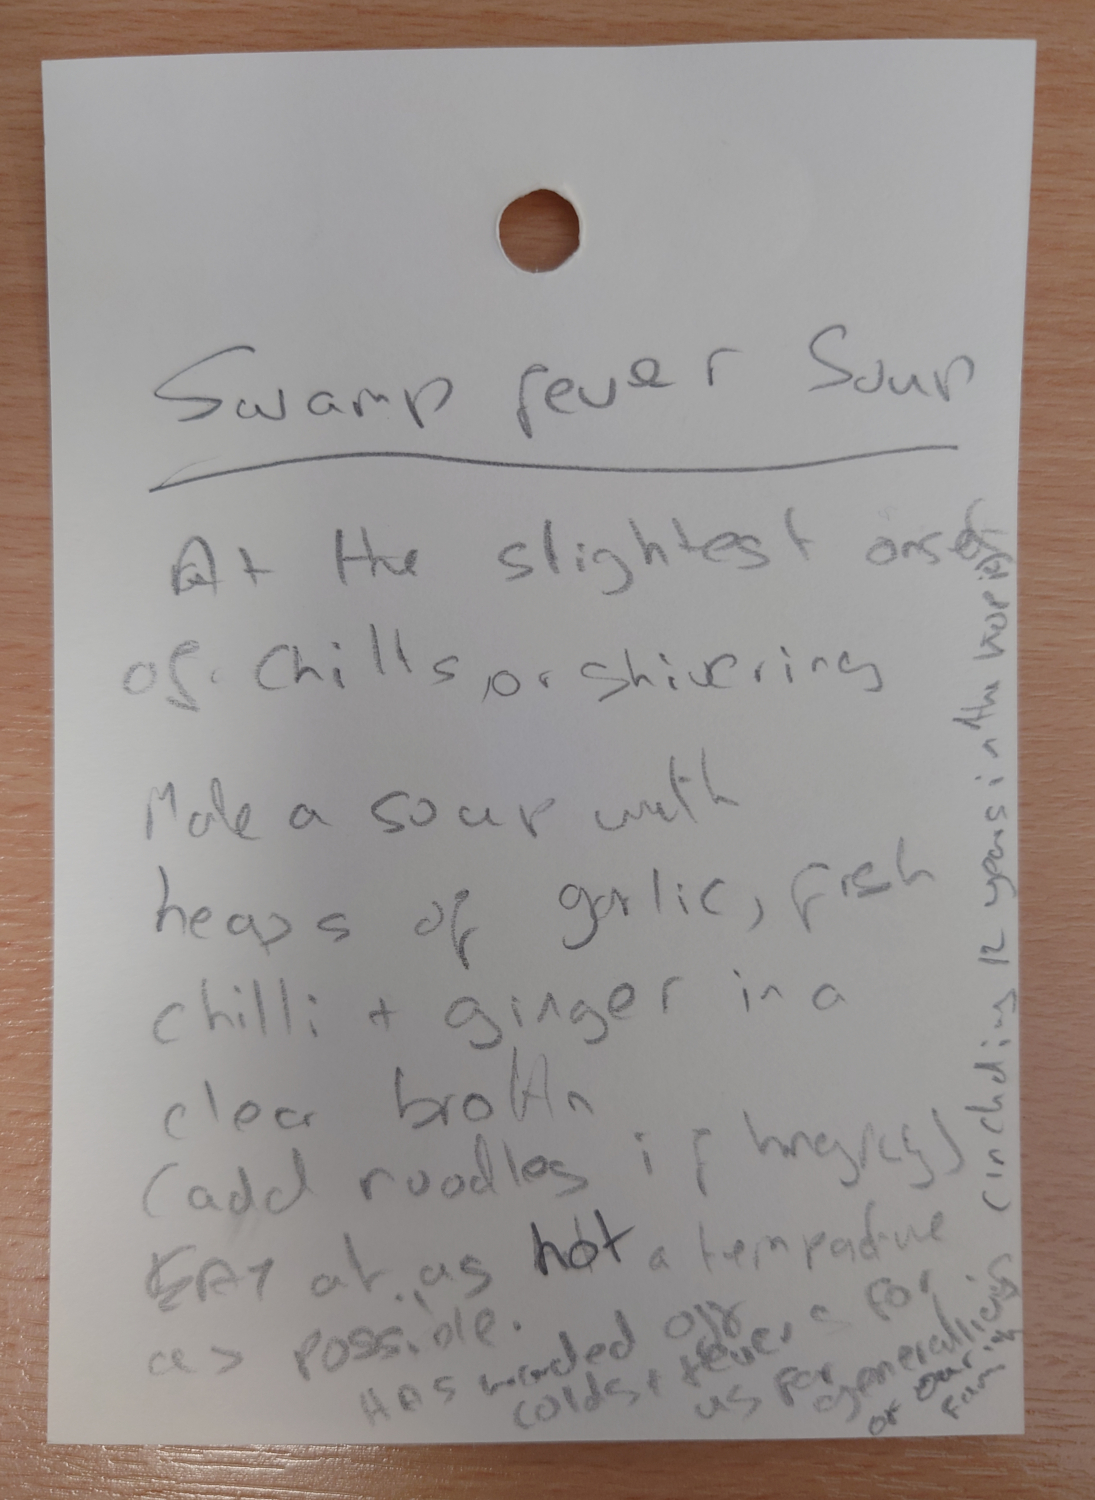 Swamp fever Soup
At the slightest onset
of chills, or shivering
Make a soup with
heaps of garlic, fish
chilli + ginger in a
clear broth
(add noodles if hungry)
EAT at as hot a temperature
as possible.
HAS warded off
colds + fevers for
us for generations
of our
family
(including 12 years in the tropics